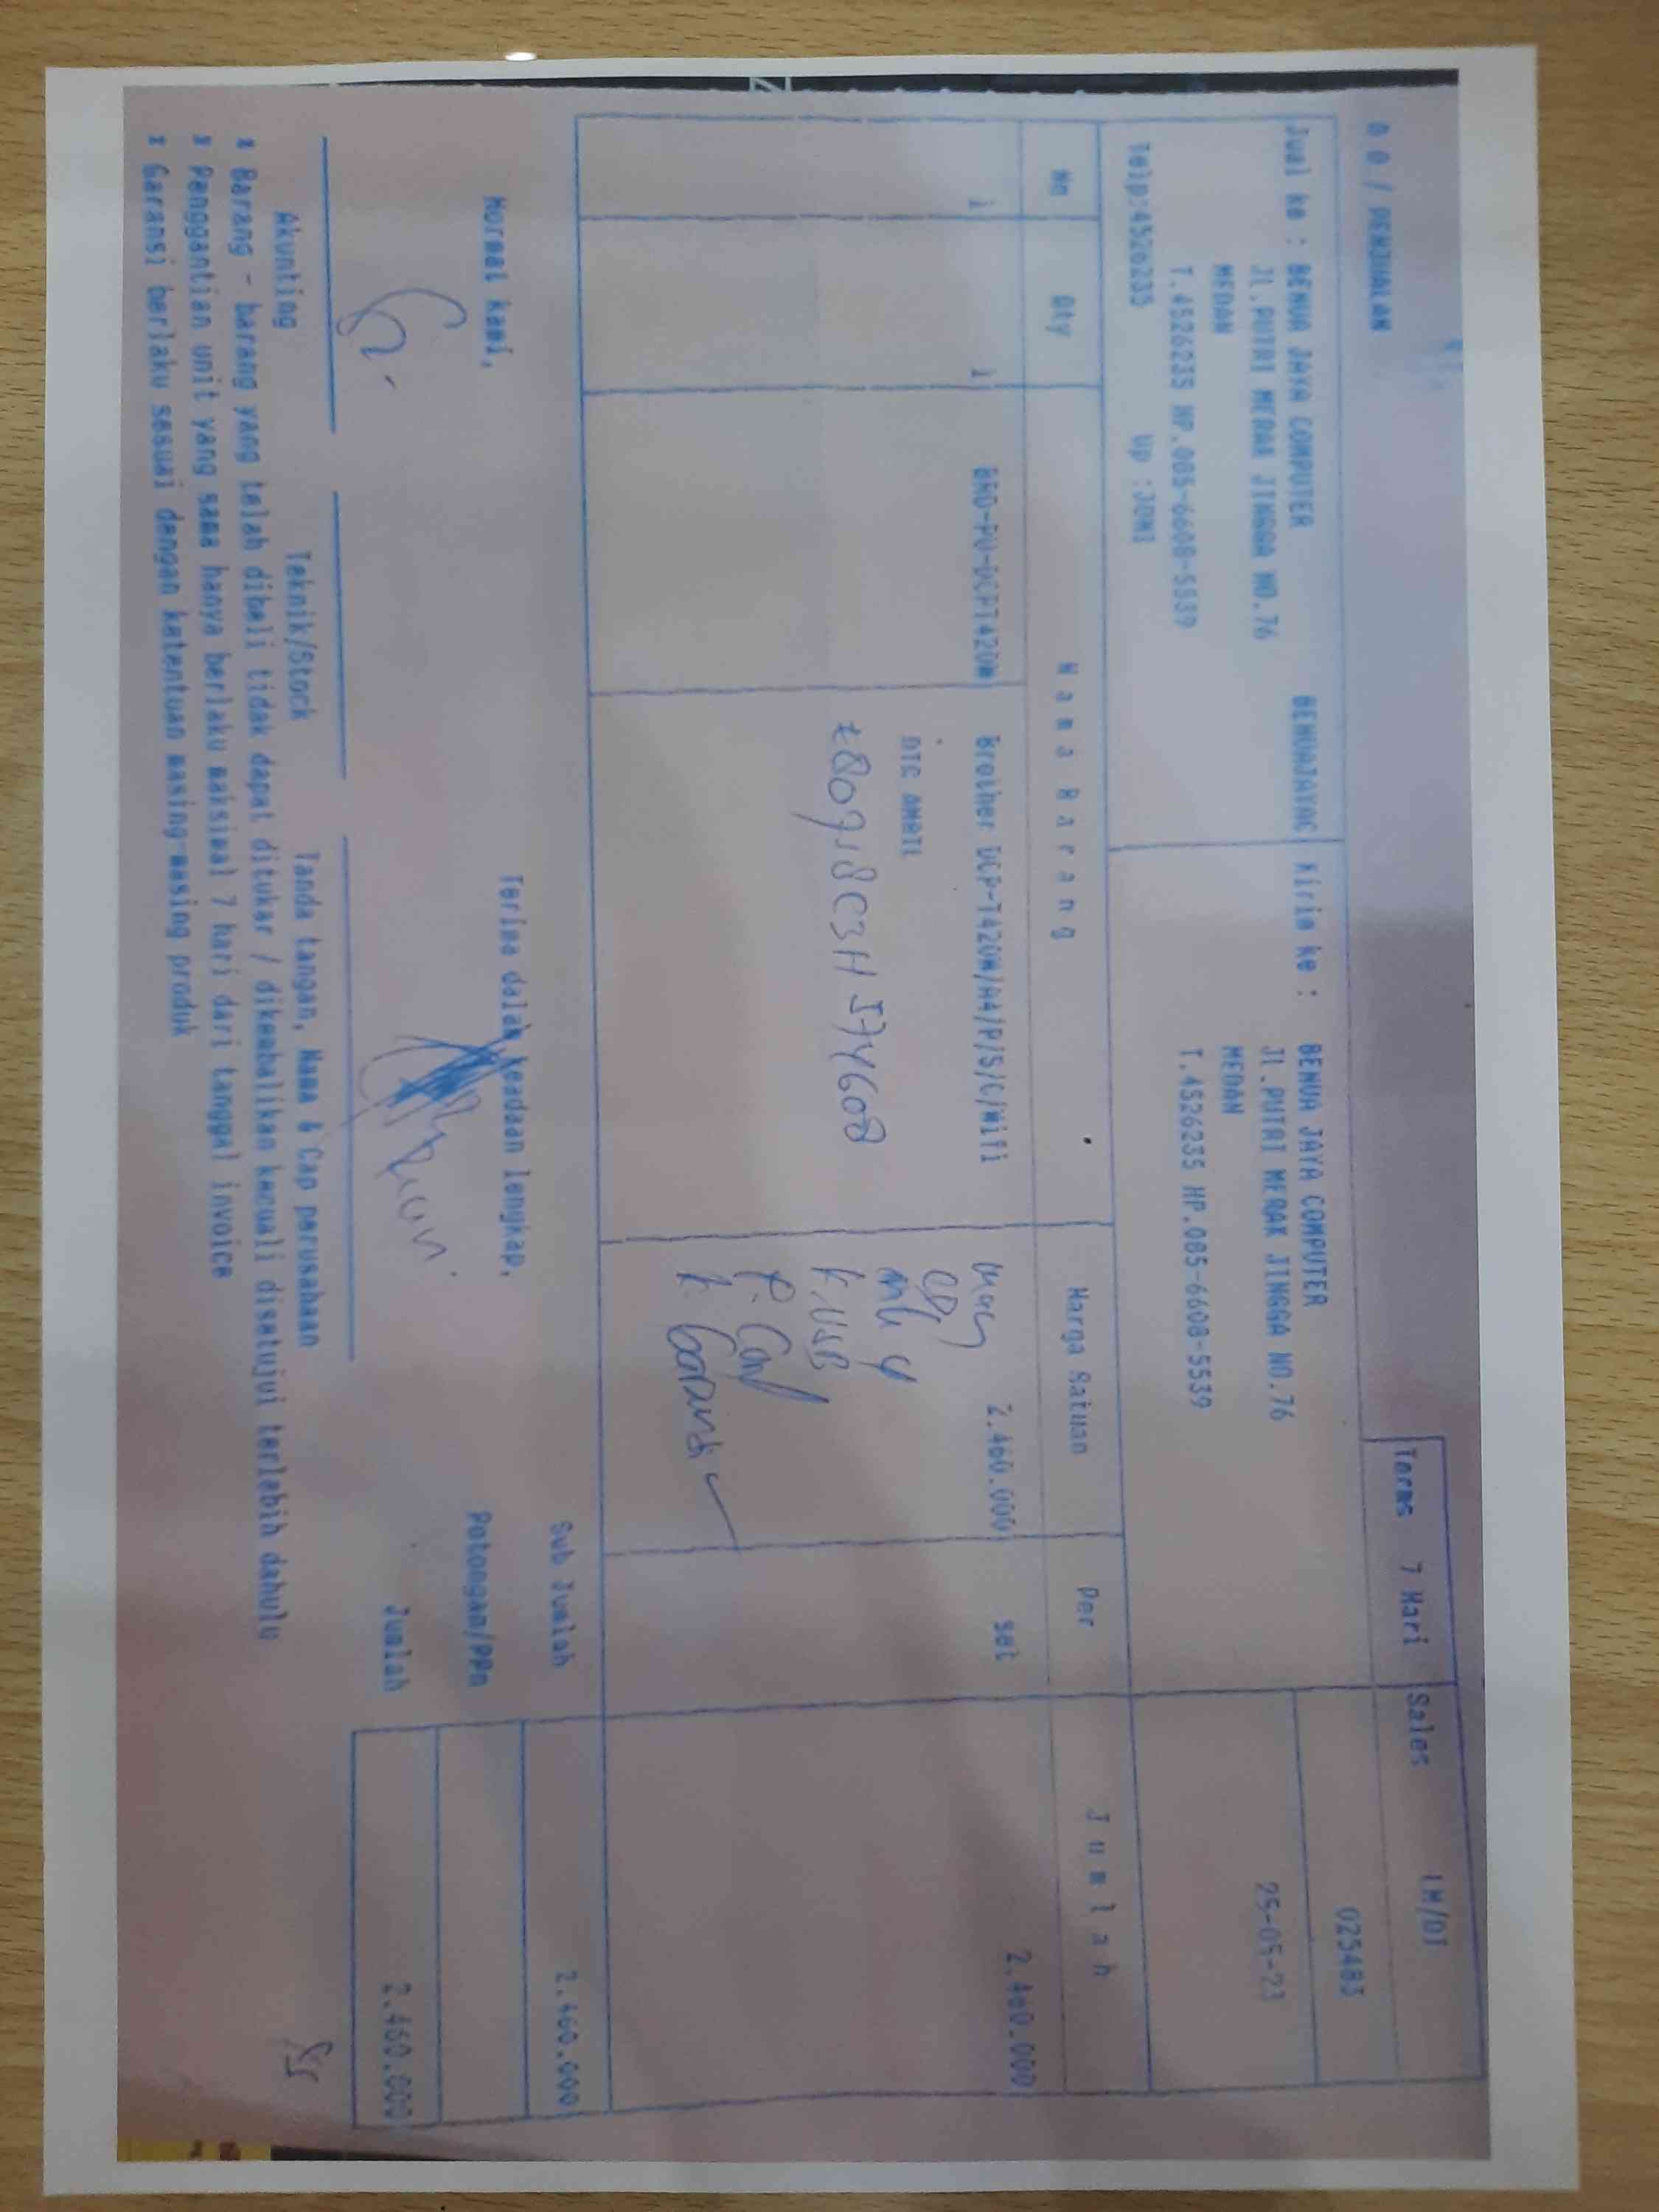 / PENJUALAN
Terms 7 Hari Sales LM/DT
023483
25-05-23
Jual ke : BENUA JAYA COMPUTER BENUAJAYAC
Jl.PUTRI MERAK JINGGA NO.76
MEDAN
T.4526235 HP.085-6608-5539
Telp:4526235 Up :JONI
Kirim ke : BENUA JAYA COMPUTER
Jl.PUTRI MERAK JINGGA NO.76
MEDAN
T.4526235 HP.085-6608-5539
No Qty Nama Barang Harga Satuan Per Jumlah
1 1 BRO-PU-DCPT420W Brother DCP-T420W/A4/P/S/C/Wifi 2.460.000 set 2.460.000
DTC AMBIL
K.USB
Sub Jumlah 2.460.000
Potongan/PPn
Jumlah 2.460.000
Hormat kami,
Terima dalam keadaan lengkap,
Akunting Teknik/Stock Tanda tangan, Nama & Cap perusahaan
* Barang - barang yang telah dibeli tidak dapat ditukar / dikembalikan kecuali disetujui terlebih dahulu
* Panggantian unit yang sama hanya berlaku maksimal 7 hari dari tanggal invoice
* Garansi berlaku sesuai dengan ketentuan masing-masing produk